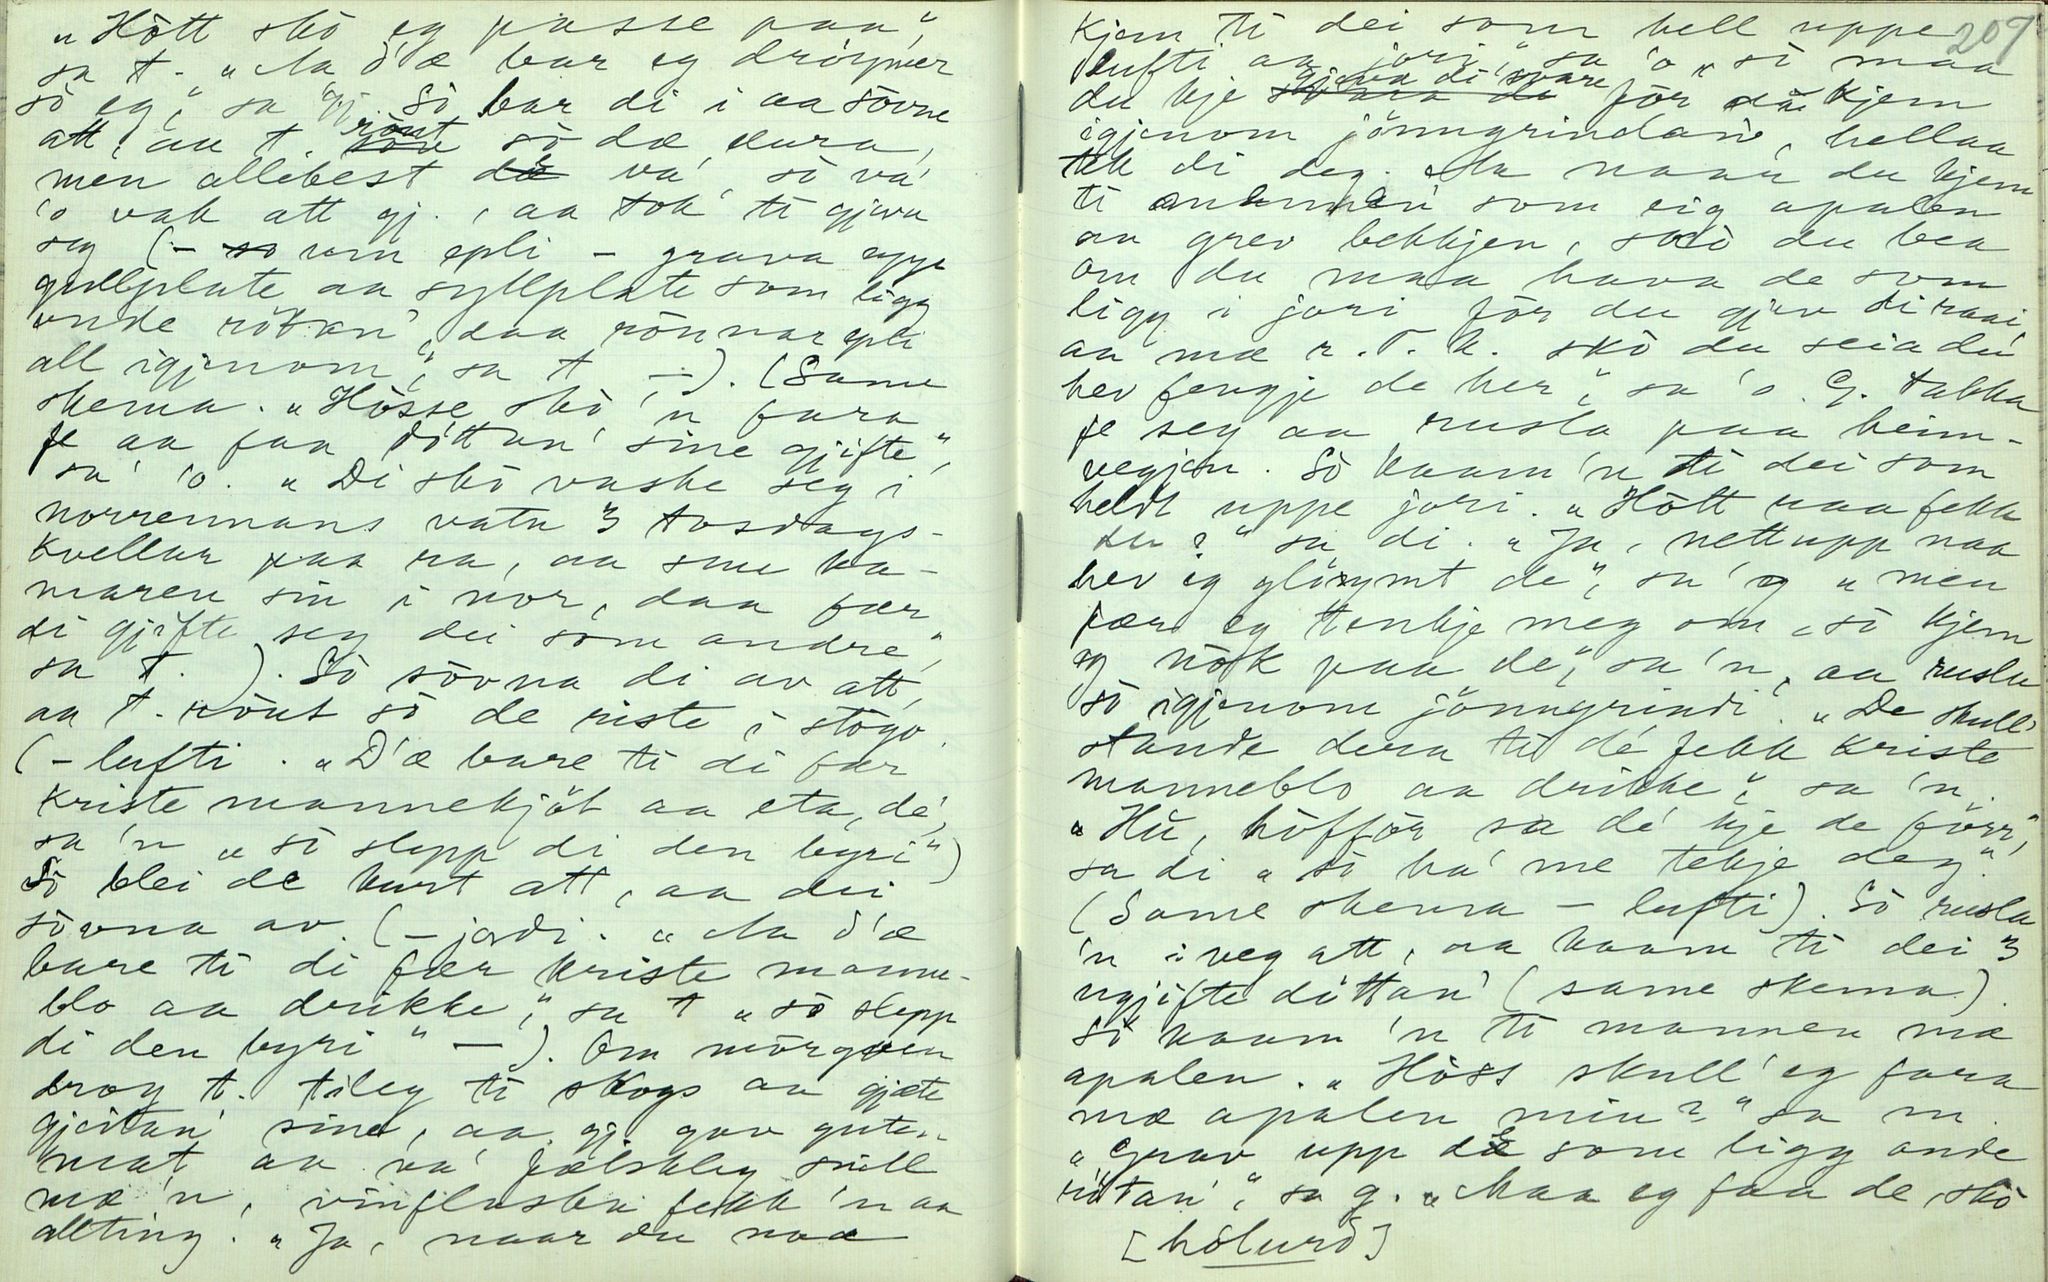 „Hôtt skô eg passe paa",
sa t. „Aa d'æ bar eg drøymer
sô eg," sa gj. Sô bar di i aa sôvne
att, aa t. rônt sô dæ dura,
men allibest dæ va', sô va'
'o vak att gj., aa tok' ti gjeva
seg (– um epli – grava uppe
gullplate aa syllplate som ligg
unde rôtan', daa rônnar epli
all igjenom," sa t –). (Same
skema. „Hôsse skô 'n fara
fe aa faa dôttan' sine gjifte",
sa' 'o. „Di skô vaske seg i
norrennans vatn 3 tosdags-
kvellar paa ra, aa snu ka-
maren sin i nor, daa fær
di gjifte seg dei som andre",
sa t. ). Sô sôvna di av att,
aa t. rônt sô de riste i stôgo.
(– lufti. „D'æ bare ti di fær
kriste mannekjøt aa eta, dé",
sa 'n „sô slepp di den byri")
Sô blei de burt att, aa dei
sôvna av. (– jordi. „Aa d'æ
bare ti di fær kriste manne-
blo aa drikke," sa t „sô slepp
di den byri" –). Om môrgoen
drog t. tileg ti skogs aa gjæte
gjeitan' sine, aa gj. gav guten
mat aa va' fælsleg snill
mæ 'n, vinflaska fekk 'n aa
allting. „Ja, naar du naa
209
kjem ti dei som hell uppe
lufti aa jori," sa 'o „sô maa
du kje gjeva di svare før du kjem
igjenom jønngrindane, hellaa
tek di deg. Aa naar du kjem
ti mannen som eig apalen
aa grev bekkjen, skô du bea
om du maa hava de som
ligg i jori før du gjev di raai,
aa mæ r. T. k. skô du seia du
hev fengje de her," sa 'o. G. takka
fe seg aa rusla paa heim-
vegjen. Sô kaam 'n ti dei som
heldt uppe jori. „Hôtt naa fekk
du?" sa di. „Ja, nettupp naa
hev eg gløymt de", sa 'g „men
fær eg tenkje meg om, sô kjem
eg nôk paa de," sa 'n, aa rusla
sô igjenom jønngrindi. „De skull'
stande dera ti dé fekk kriste
manneblo aa drikke," sa 'n.
„Hu, hôffôr sa dé kje de førr",
sa di „sô ha' me tekje deg."
(Same skema – lufti). Sô rusla
'n i veg att, aa kaam ti dei 3
ugjifte dôttan' (same skema).
Sô kaam 'n ti mannen mæ
apalen. „Hôss skull' eg fara
mæ apalen min?" sa m.
„Grav upp dæ som ligg unde
rôtan'," sa g. „Maa eg faa de, skô
[hôlurd]